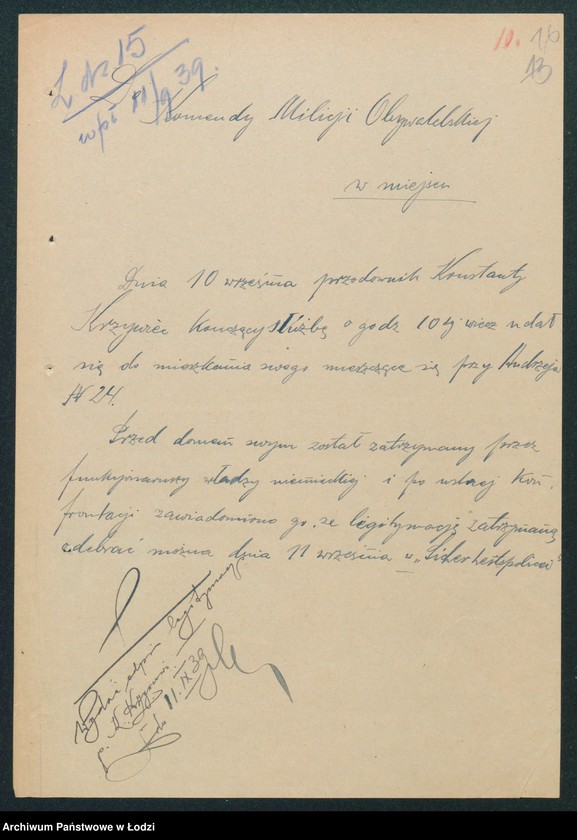 L dz 15
wpł 11/9 39.
10. 16
13
Komendy Milicji Obywatelskiej
w miejscu
Dnia 10 września przodownik Konstanty
Krzywiec kończący służbę o godz 10 ej wiecz udał
się do mieszkania swego mieszczące się przy Andrzeja
№ 24.
Przed domem swym został zatrzymany przez
funkcjonarjuszy władzy niemieckiej i po
frontacji zawiadomiono go, że legitymację zatrzymaną
odebrać można dnia 11 września w „Sicherheitspolizei"
legitymacji
p. K.
11. IX 39
Archiwum Państwowe w Łodzi